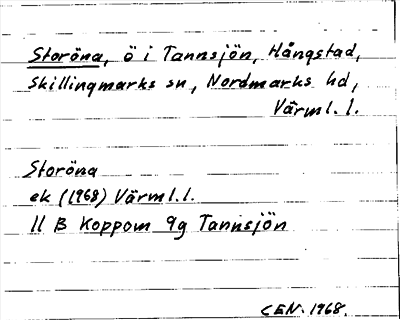 Storöna, ö i Tannsjön, Hångstad,
Skillingmarks sn, Nordmarks hd,
Värml. l.
Storöna
ek (1968) Värml. l.
11 B Koppom 9g Tannsjön
CEN. 1968.